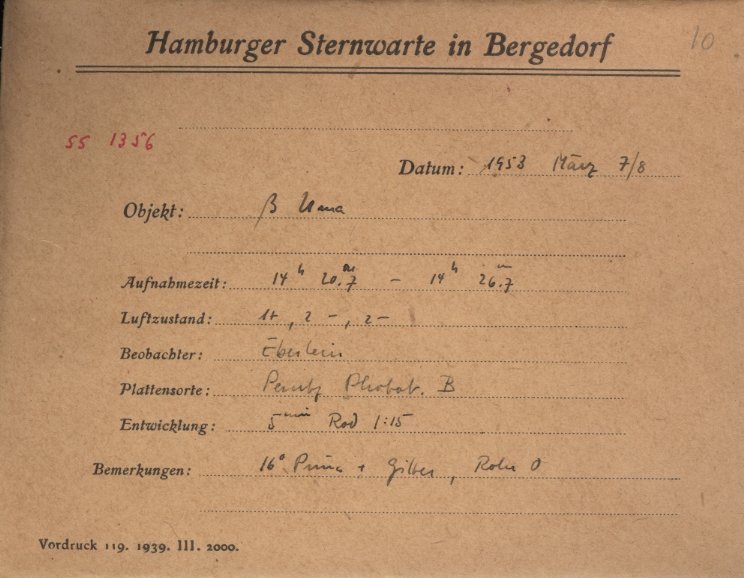 Hamburger Sternwarte in Bergedorf
10
SS 1356
Datum: 1953 März 7/8
Objekt: β Uma
Aufnahmezeit: 14h 20.m7 – 14h 26.m7
Luftzustand: 1+, 2 –, 2 –
Beobachter: Eberlein
Plattensorte: Perutz Photot. B
Entwicklung: 5min Rod 1:15
Bemerkungen: 16° Prisma + , Rohr 0
Vordruck 119. 1939. III. 2000.